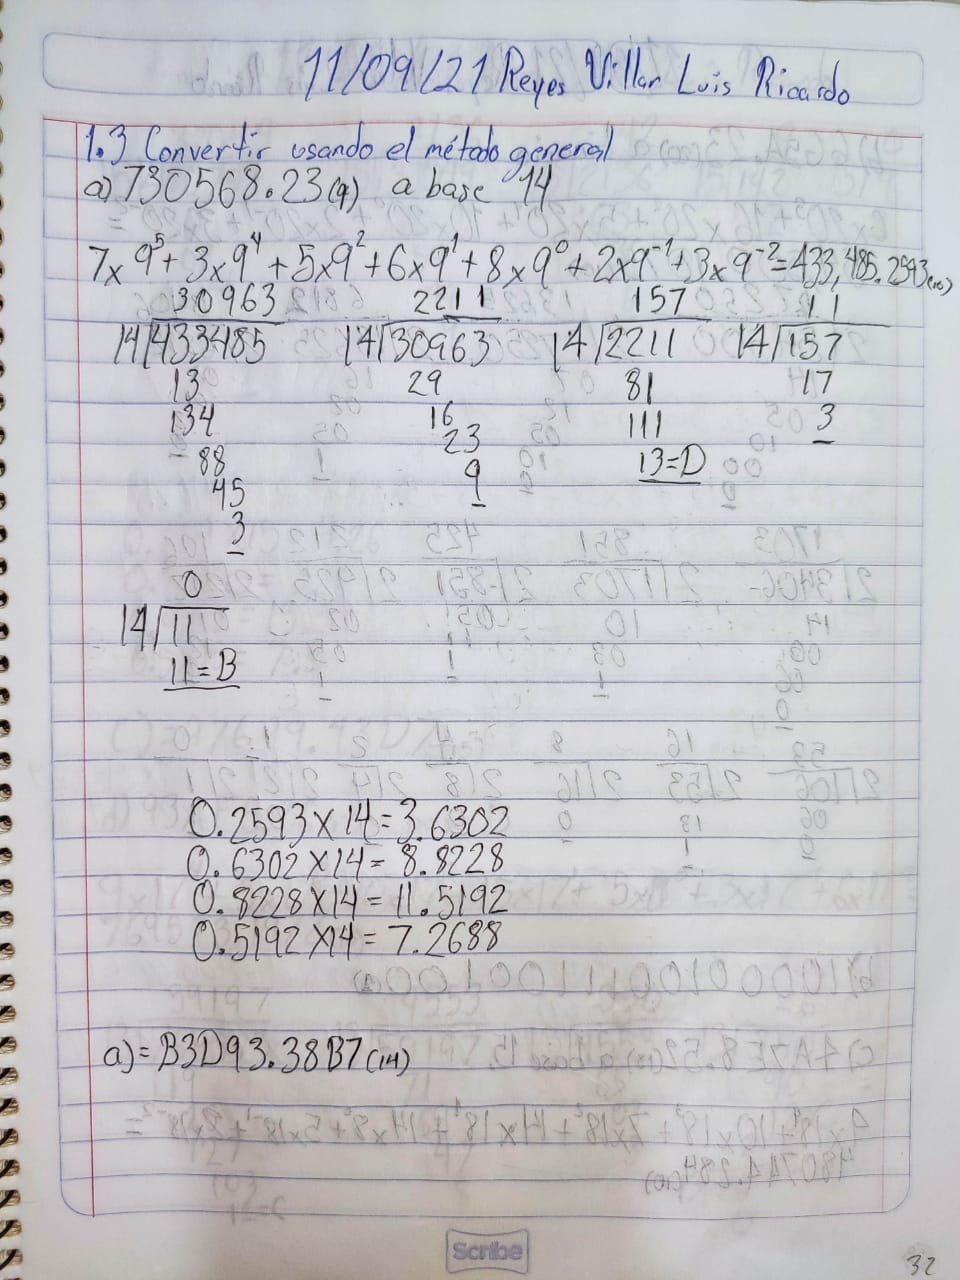 11/09/21 Reyes Villar Luis Ricardo
1.3 Convertir usando el método general
a) 730568.23(9) a base 14
7x9⁵+3x9⁴+5x9²+6x9¹+8x9⁰+2x9⁻¹+3x9⁻²=433,485.2593(10)
30963 2211 157 11
14/433485 14/30963 14/2211 14/157
13 29 81 17
134 16 111 3
88 23 13=D
45 9
3
0
14/11
11=B
0.2593x14=3.6302
0.6302x14=8.8228
0.8228x14=11.5192
0.5192x14=7.2688
a)=B3D93.38B7(14)
Scribe
32